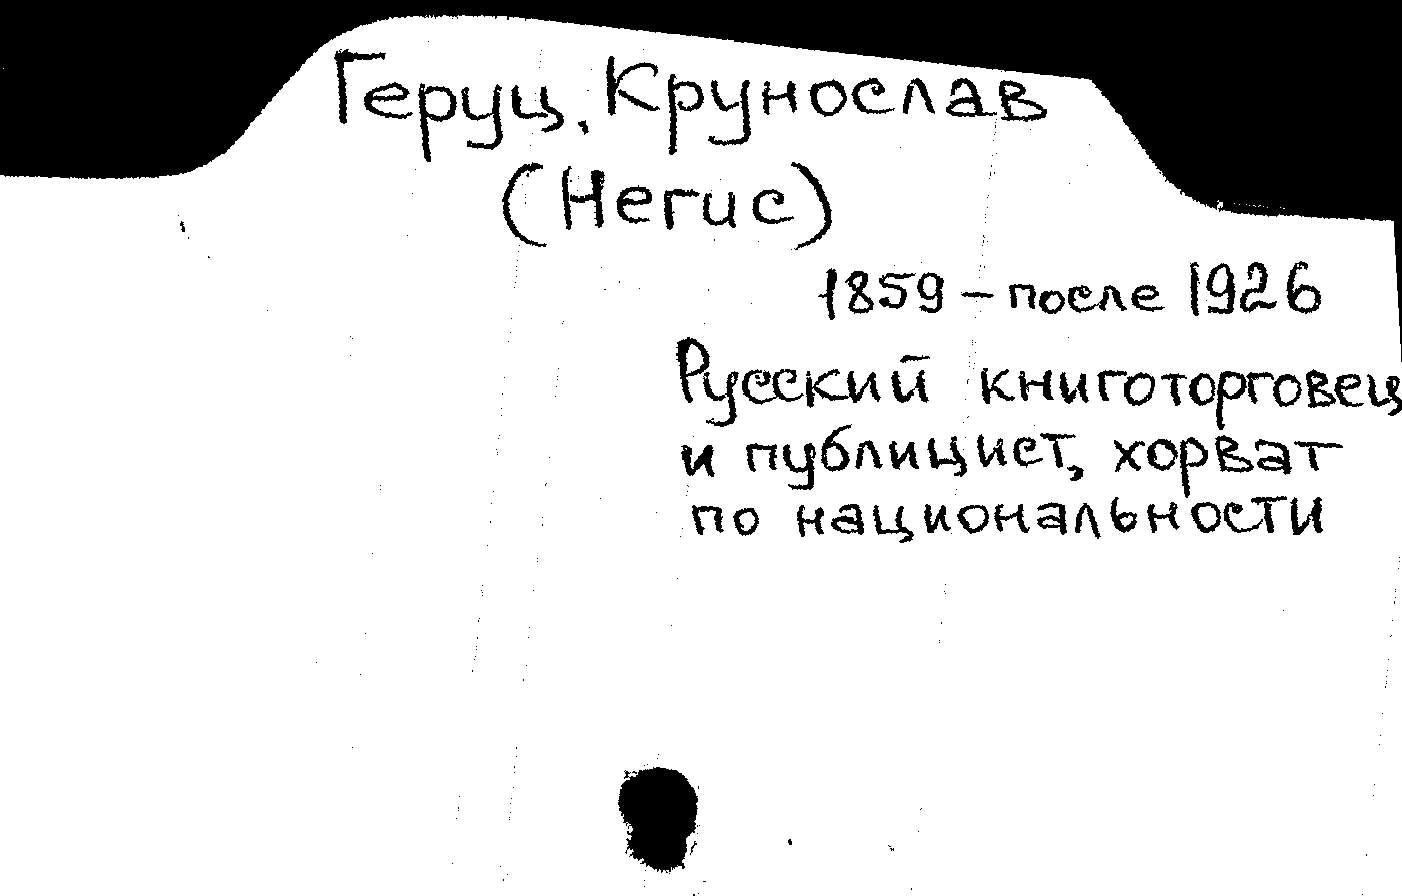 Геруц, Крунослав
(Негис)
1859 – после 1926
Русский книготорговец
и публицист, хорват
по национальности